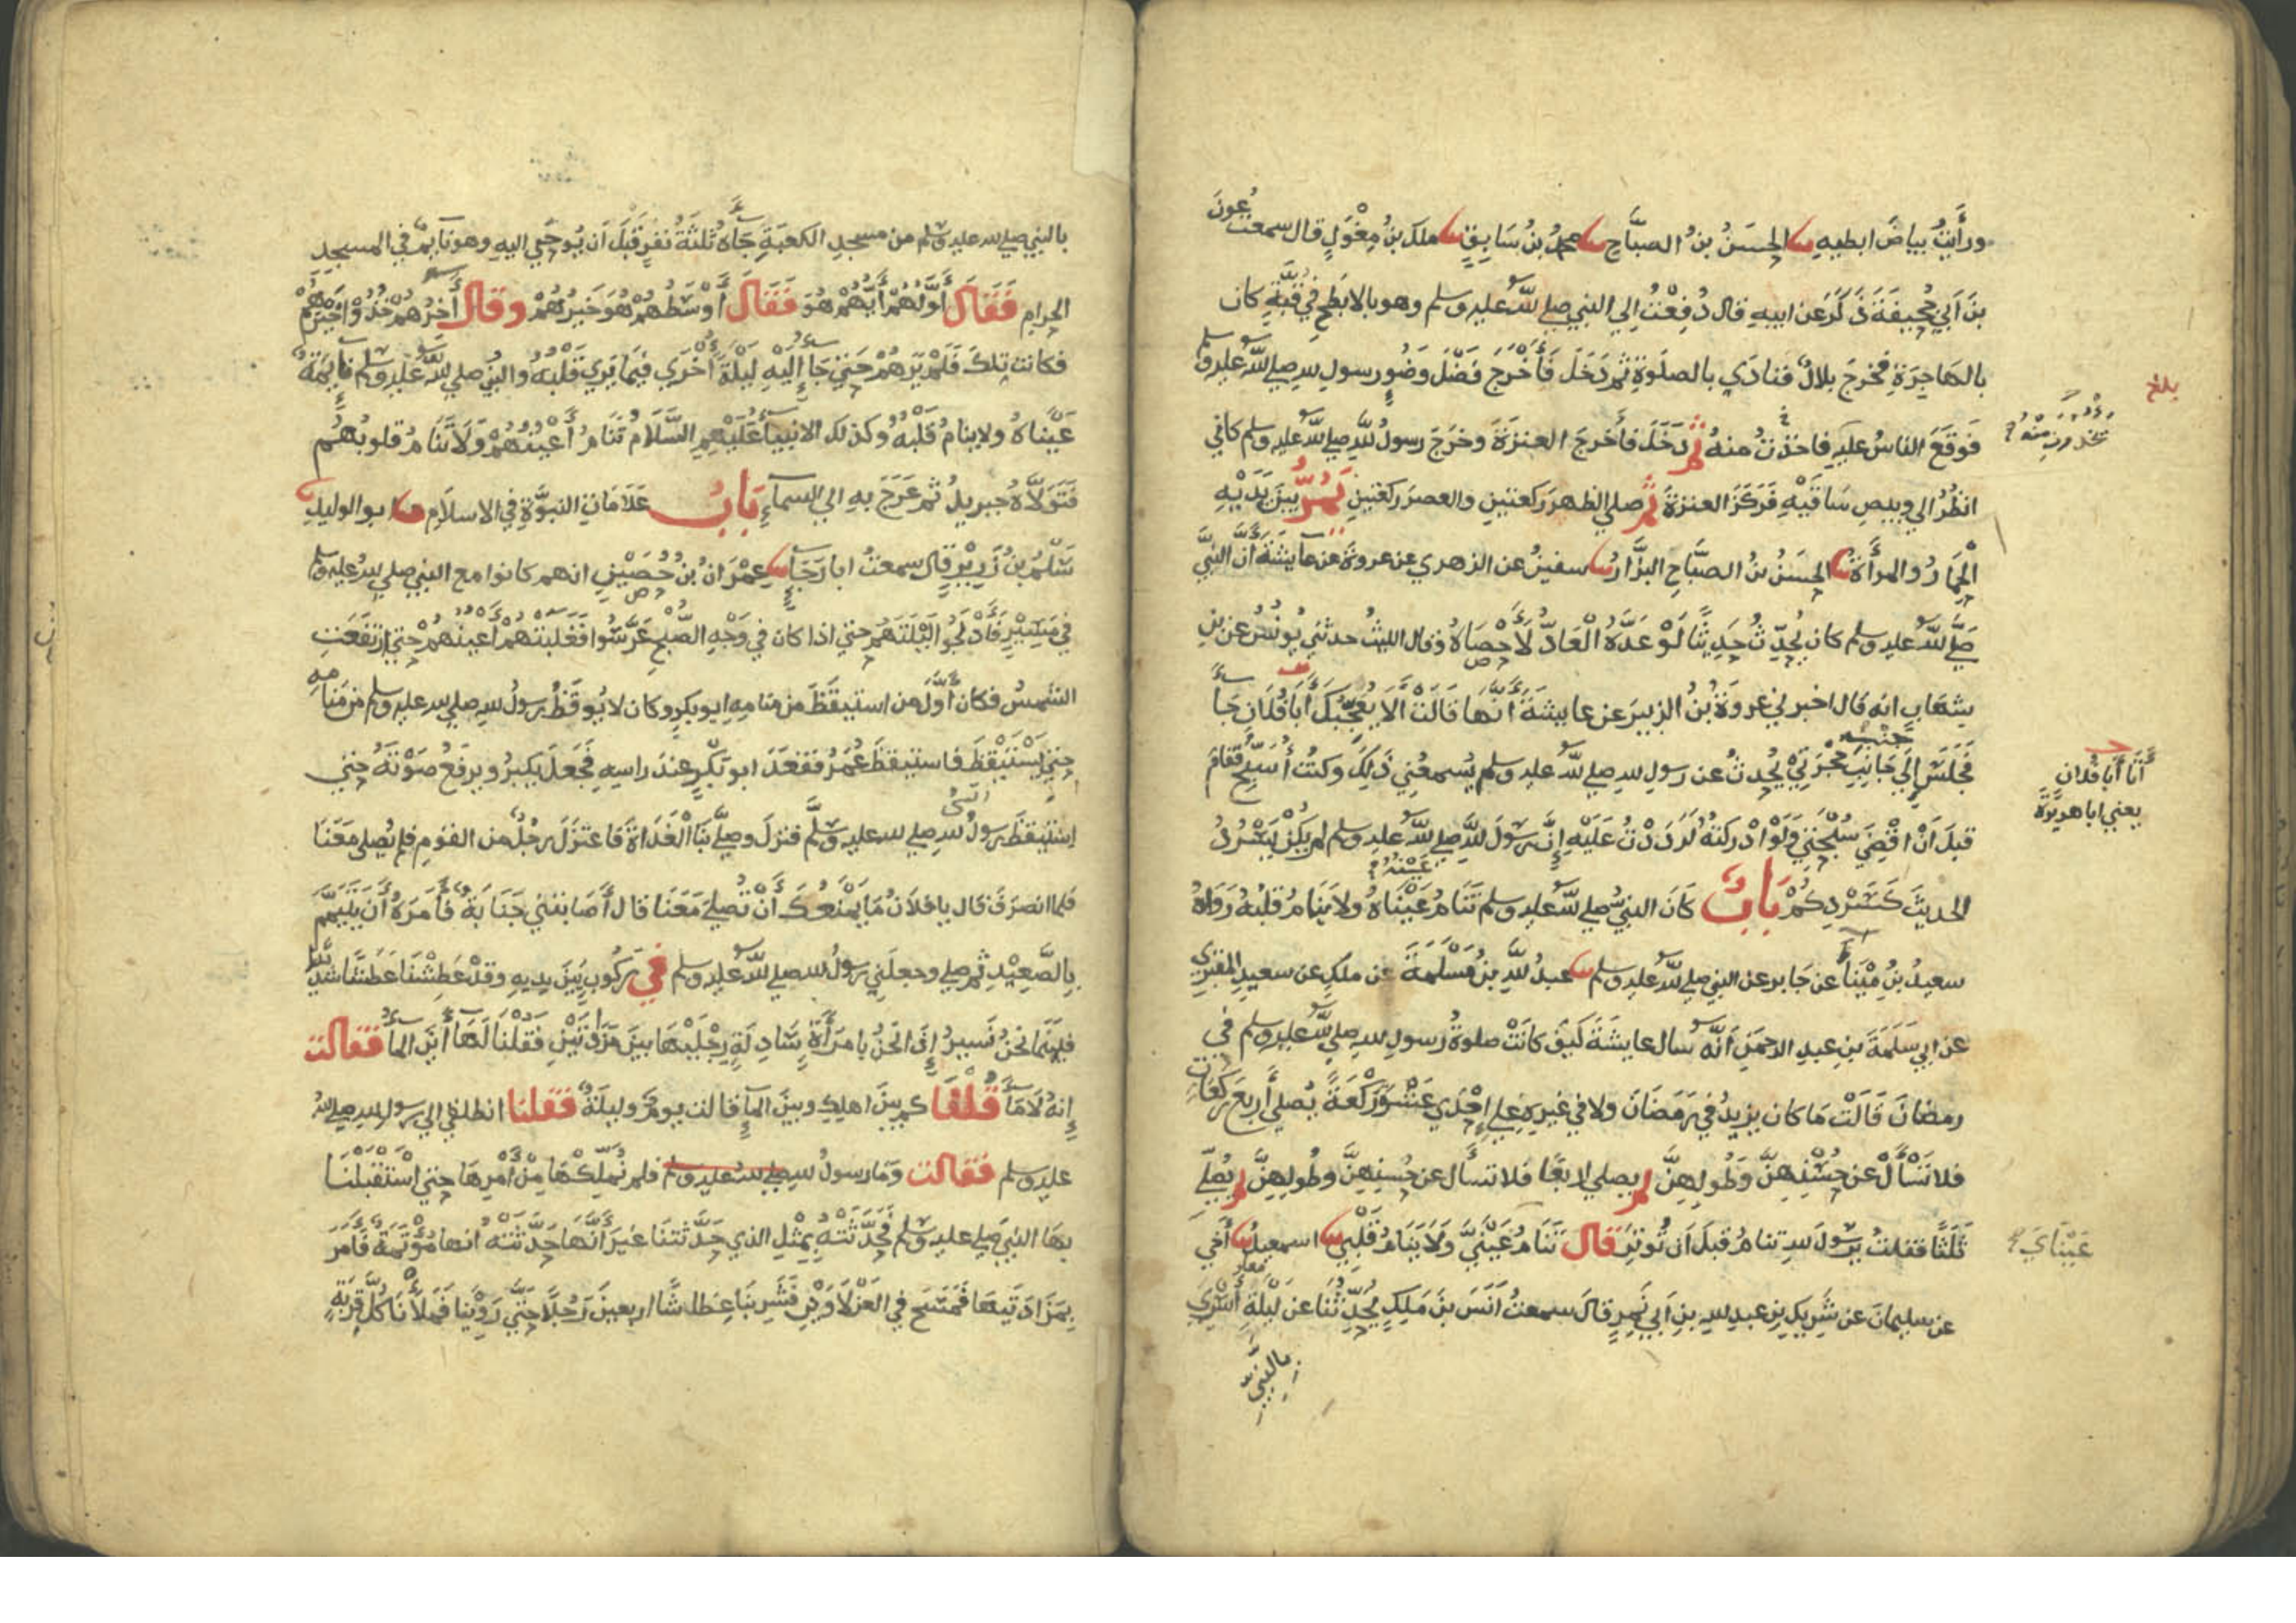 ورأيت بياض ابطيه ثنا الحسن بن الصباح ثنا محمد بن سابق ثنا ملك بن مغول قال سمعت عون
بن ابي جحيفة ذكر عن ابيه قال دفعت الي النبي صلي الله عليه وسلم وهو بالابطح في قبة كان
بالهاجرة فخرج بلال فنادي بالصلوة ثم دخل فأخرج فضل وضوء رسول الله صلي الله عليه وسلم
فوقع الناس عليه فاخذت منه ثم دخل فأخرج العنزة وخرج رسول الله صلي الله عليه وسلم كاني
انظر الي وبيص ساقيه فركز العنزة ثم صلي الظهر ركعتين والعصر ركعتين يمر بين يديه
الحمار والمرأة ثنا الحسن بن الصباح البزار ثنا سفين عن الزهري عن عروة عن عايشة أن النبي
صلي الله عليه وسلم كان يحدث حديثا لو عده العاد لأحصاه وقال الليث حدثني يونس عن بن
شهاب انه قال اخبرني عروة بن الزبير عن عايشة أنها قالت ألا يعجبك أبا فلان جاء
فجلس إلي جانب حجرتي يحدث عن رسول الله صلي الله عليه وسلم يسمعني ذلك وكنت أسبح فقام
قبل أن اقضي سبحتي ولو ادركته لرددت عليه إن رسول الله صلي الله عليه وسلم لم يكن يسرد
الحديث كسردكم باب كان النبي صلي الله عليه وسلم تنام عيناه ولا ينام قلبه رواه
سعيد بن ميناء عن جابر عن النبي صلي الله عليه وسلم ثنا عبد الله بن مسلمة عن ملك عن سعيد المقبري
عن ابي سلمة بن عبد الرحمن أنه سال عايشة كيف كانت صلوة رسول الله صلي الله عليه وسلم في
رمضان قالت ما كان يزيد في رمضان ولا في غيره علي إحدي عشرة ركعة يصلي أربع ركعات
فلا تسأل عن حسنهن وطولهن ثم يصلي اربعا فلا تسأل عن حسنهن وطولهن ثم يصلي
ثلثا فقلت يرسول الله تنام قبل أن توتر قال تنام عيني ولا ينام قلبي ثنا اسمعيل ثنا أخي
عن سليمان عن شريك بن عبد الله بن أبي نمر قال سمعت أنس بن ملك يحدثنا عن ليلة أسري
بالنبي
بلغ
أنا أبا فلان
يعني ابا هريرة
عيناي
بالنبي صلي الله عليه وسلم من مسجد الكعبة جاءه ثلثة نفر قبل أن يوحي اليه وهو نايم في المسجد
الحرام فقال أولهم أيهم هو فقال أوسطهم هو خيرهم وقال أخرهم خذوا خيرهم
فكانت تلك فلم يرهم حتي جاء إليه ليلة أخري فيما يري قلبه والنبي صلي الله عليه وسلم نايمة
عيناه ولا ينام قلبه وكذلك الانبياء عليهم السلام تنام أعينهم ولا تنام قلوبهم
فتولاه جبريل ثم عرج به الي السماء باب علامات النبوة في الاسلام ثنا ابو الوليد
سلم بن زرير قال سمعت ابا رجاء ثنا عمران بن حصين انهم كانوا مع النبي صلي الله عليه وسلم
في مسير فأدلجوا ليلتهم حتي اذا كان في وجه الصبح عرسوا فغلبتهم أعينهم حتي ارتفعت
الشمس فكان أول من استيقظ من منامه ابو بكر وكان لا يوقظ رسول الله صلي الله عليه وسلم من منامه
حتي يستيقظ فاستيقظ عمر فقعد ابو بكر عند راسه فجعل يكبر ويرفع صوته حتي
استيقظ رسول الله صلي الله عليه وسلم فنزل وصلي بنا الغداة فاعتزل رجل من القوم فلم يصلي معنا
فلما انصرف قال يا فلان ما يمنعك أن تصلي معنا قال أصابتني جنابة فأمره أن يتيمم
بالصعيد ثم صلي وجعلني رسول الله صلي الله عليه وسلم في ركوب بين يديه وقد عطشنا عطشا شديدا
فبينما نحن نسير إذا نحن بامرأة سادلة رجليها بين مزادتين فقلنا لها أين الماء فقالت
إنه لا ماء قلنا كم بين اهلك وبين الماء قالت يوم وليلة فقلنا انطلقي الي رسول الله صلي الله
عليه وسلم فقالت وما رسول الله صلي الله عليه وسلم فلم نملكها من أمرها حتي استقبلنا
بها النبي صلي عليه وسلم فحدثته بمثل الذي حدثتنا غير أنها حدثته انها مؤتمة فأمر
بمزادتيها فمسح في العزلاوين فشربنا عطاشا اربعين رجلا حتي روينا فملأنا كل قربة